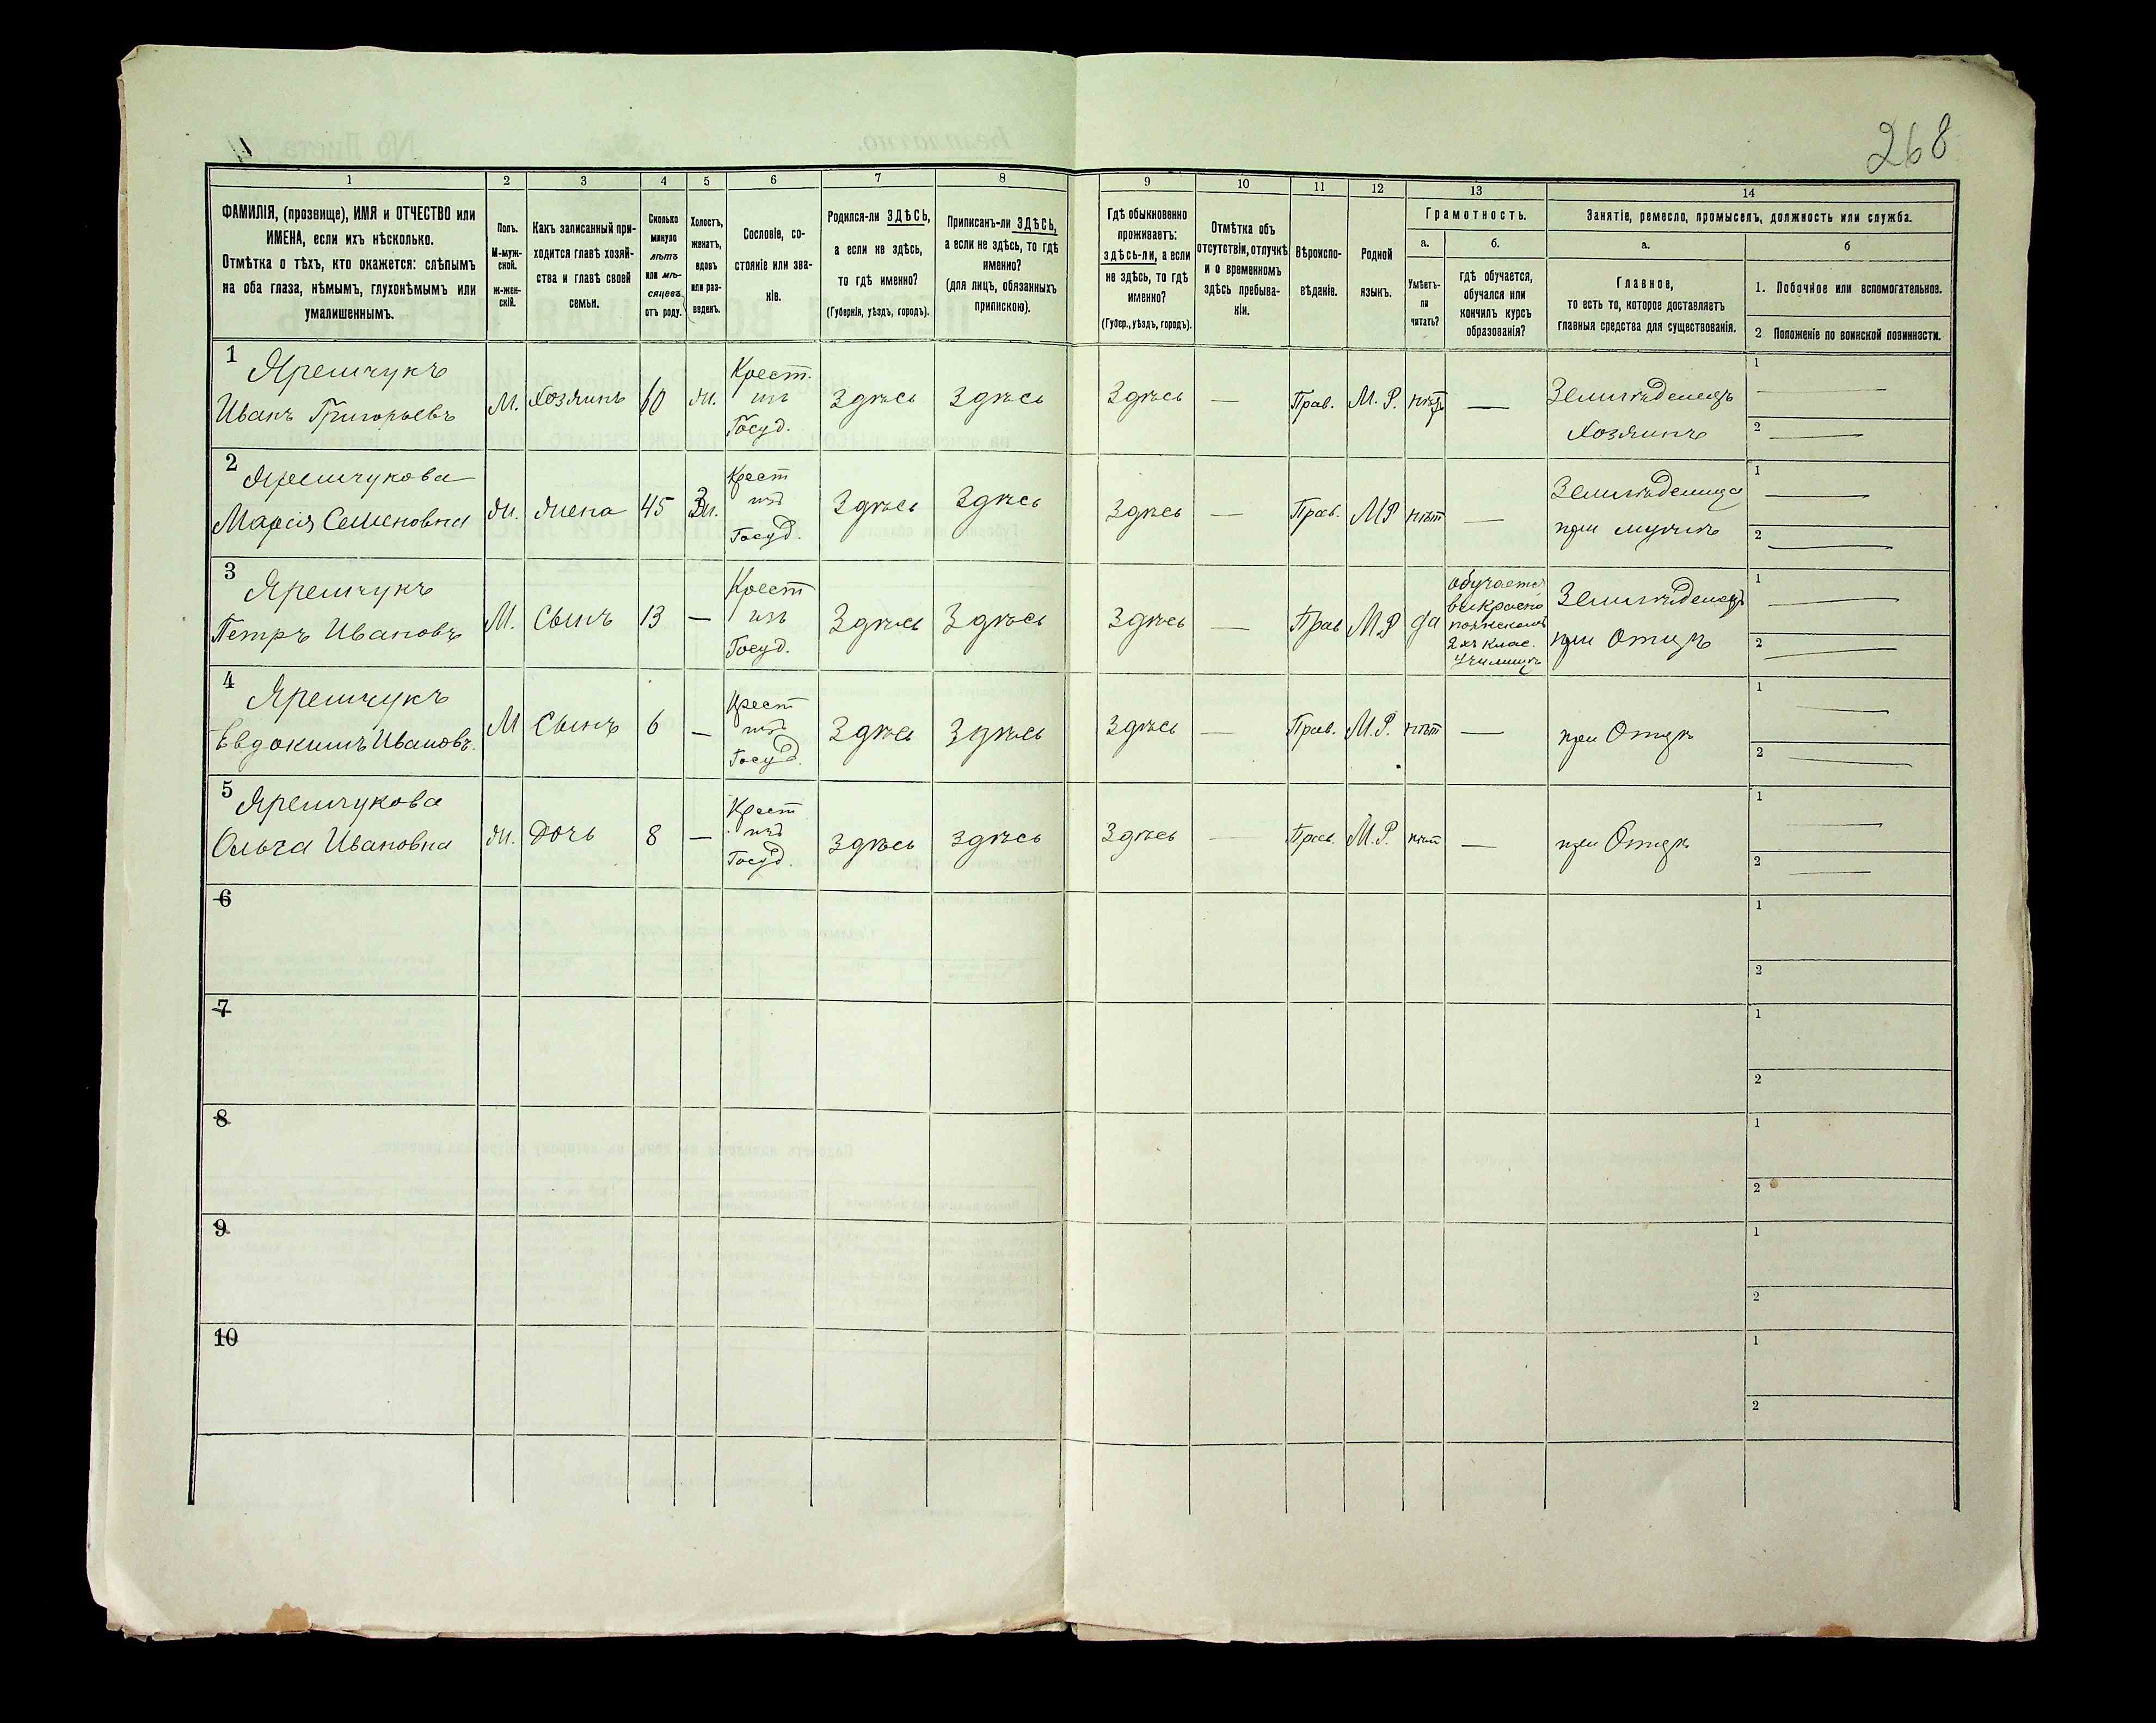 268
1 2 3 4 5 6 7 8 9 10 11 12 13 14
ФАМИЛІЯ, (прозвище), ИМЯ и ОТЧЕСТВО или
ИМЕНА, если ихъ нѣсколько.
Отмѣтка о тѣхъ, кто окажется: слѣпымъ
на оба глаза, нѣмымъ, глухонѣмымъ или
умалишеннымъ.
Полъ.
М-муж-
ской.
ж-жен-
скій.
Какъ записанный при-
ходится главѣ хозяй-
ства и главѣ своей
семьи.
Сколько
минуло
лѣтъ
или мѣ-
сяцевъ
отъ роду.
Холостъ,
женатъ,
вдовъ
или раз-
веденъ.
Сословіе, со-
стояніе или зва-
ніе.
Родился-ли ЗДѢСЬ,
а если не здѣсь,
то гдѣ именно?
(Губернія, уѣздъ, городъ).
Приписанъ-ли ЗДѢСЬ,
а если не здѣсь, то гдѣ
именно?
(для лицъ, обязанныхъ
припискою).
Гдѣ обыкновенно
проживаетъ:
здѣсь-ли, а если
не здѣсь, то гдѣ
именно?
(Губер., уѣздъ, городъ).
Отмѣтка объ
отсутствіи, отлучкѣ
и о временномъ
здѣсь пребыва-
ніи.
Вѣроиспо-
вѣданіе.
Родной
языкъ.
Грамотность.
а.
Умѣетъ-
ли
читать?
б.
гдѣ обучается,
обучался или
кончилъ курсъ
образованія?
Занятіе, ремесло, промыселъ, должность или служба.
а.
Главное,
то есть то, которое доставляетъ
главныя средства для существованія.
б
1. Побочное или вспомогательное.
2 Положеніе по воинской повинности.
1 Яремчукъ
Иванъ Григорьевъ
М. Хозяинъ 60 ж.
Крест.
изъ
Госуд.
Здѣсь Здѣсь Здѣсь — Прав. М. Р. нѣтъ —
Земледѣлецъ
Хозяинъ
1 —
2 —
2 Яремчукова
Марія Семеновна
ж. жена 45 Зм.
Крест
изъ
Госуд.
Здѣсь Здѣсь Здѣсь — Прав. МР нѣт —
Земледѣлица
при мужѣ
1 —
2 —
3 Яремчукъ
Петръ Ивановъ
М. Сынъ 13 —
Крест
изъ
Госуд.
Здѣсь Здѣсь Здѣсь — Прав М.Р да
обучается
2хъ клас.
училищѣ
Земледѣлецъ
при Отцѣ
1 —
2 —
4 Яремчукъ
Евдокимъ Ивановъ.
М Сынъ 6 —
Крест
изъ
Госуд.
Здѣсь Здѣсь Здѣсь — Прав. М.Р. нѣт —
при Отцѣ
1 —
2 —
5 Яремчукова
Ольга Ивановна
ж. Дочь 8 —
Крест
изъ
Госуд.
Здѣсь Здѣсь Здѣсь — Прав. М.Р. нѣт —
при Отцѣ
1 —
2 —
6
1
2
7
1
2
8
1
2
9
1
2
10
1
2